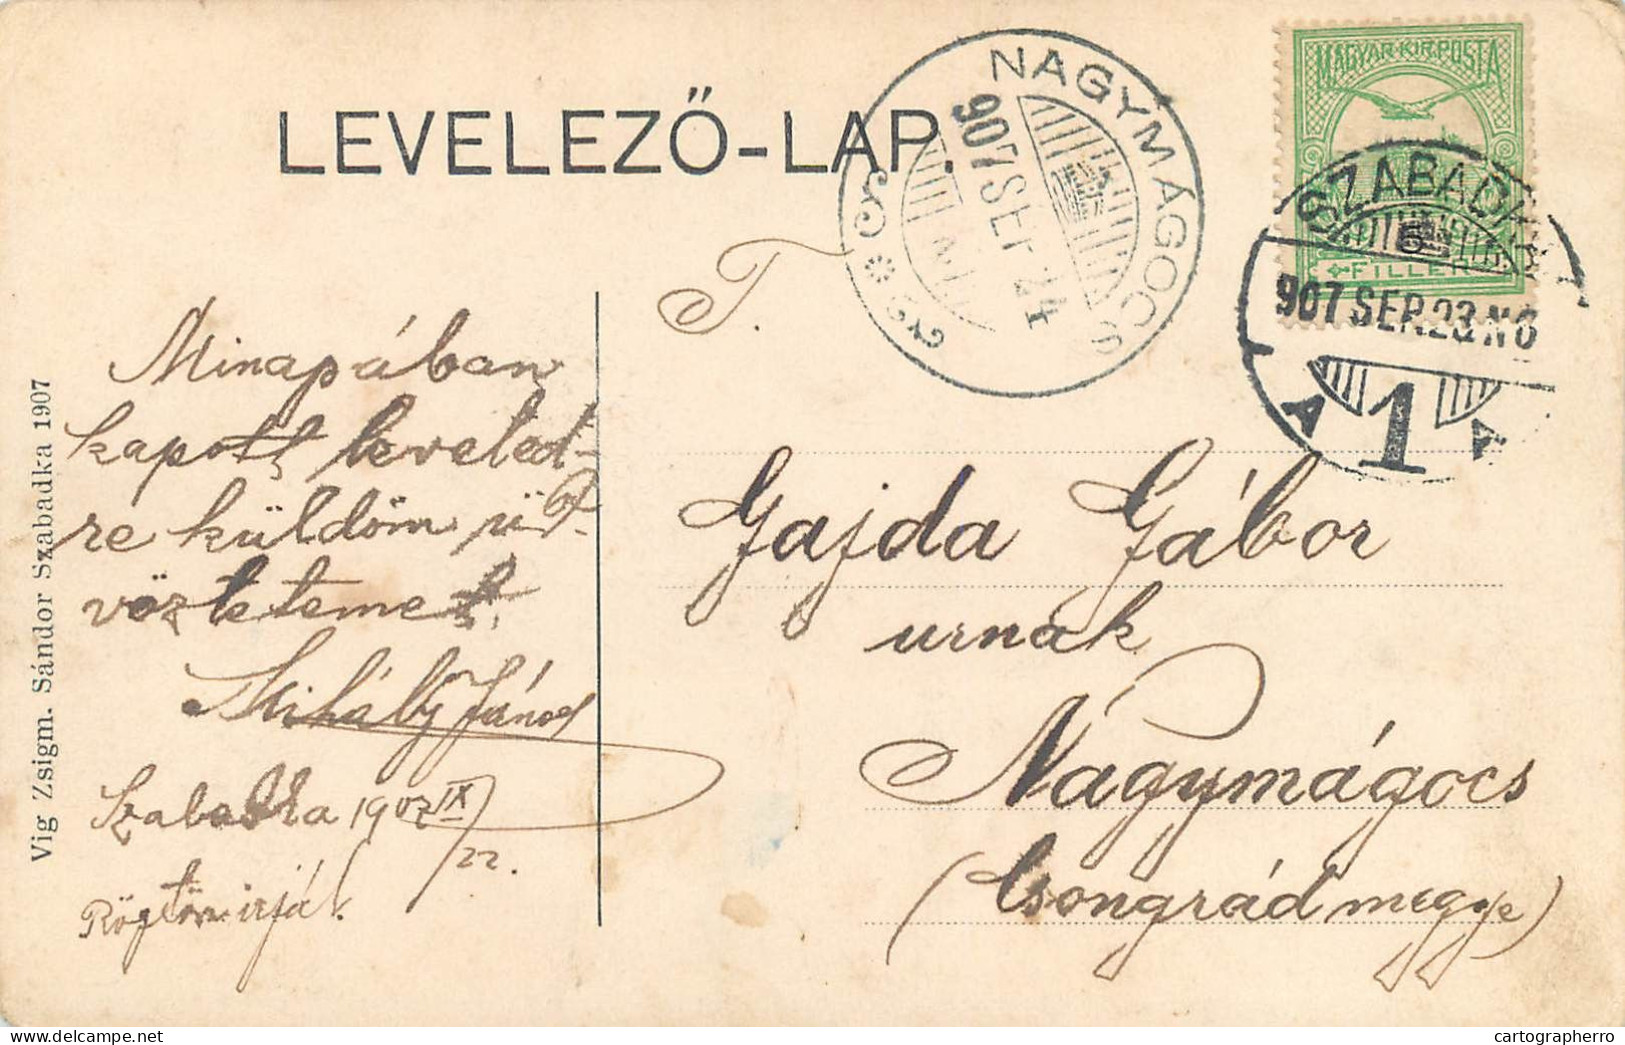 LEVELEZŐ-LAP.
NAGYMÁGOCS
907 SEP 24
MAGYAR·KIR·POSTA
FILLÉR
SZABADKA
907 SEP. 23 N 6
A 1 A
T.
Minapában
kapott leveled-
re küldöm üd-
vözletemet.
Mihály János
Szabadka 1907 IX/22.
Rögtön irjál.
Gajda Gábor
urnak
Nagymágocs
(Csongrád megye)
Vig Zsigm. Sándor Szabadka 1907
cartographerro